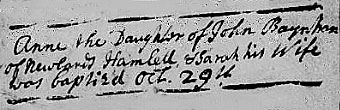 Anne the Daughter of John Baynham
of Newlands Hamlett & Sarah his Wife
was baptiz'd Oct. 29th